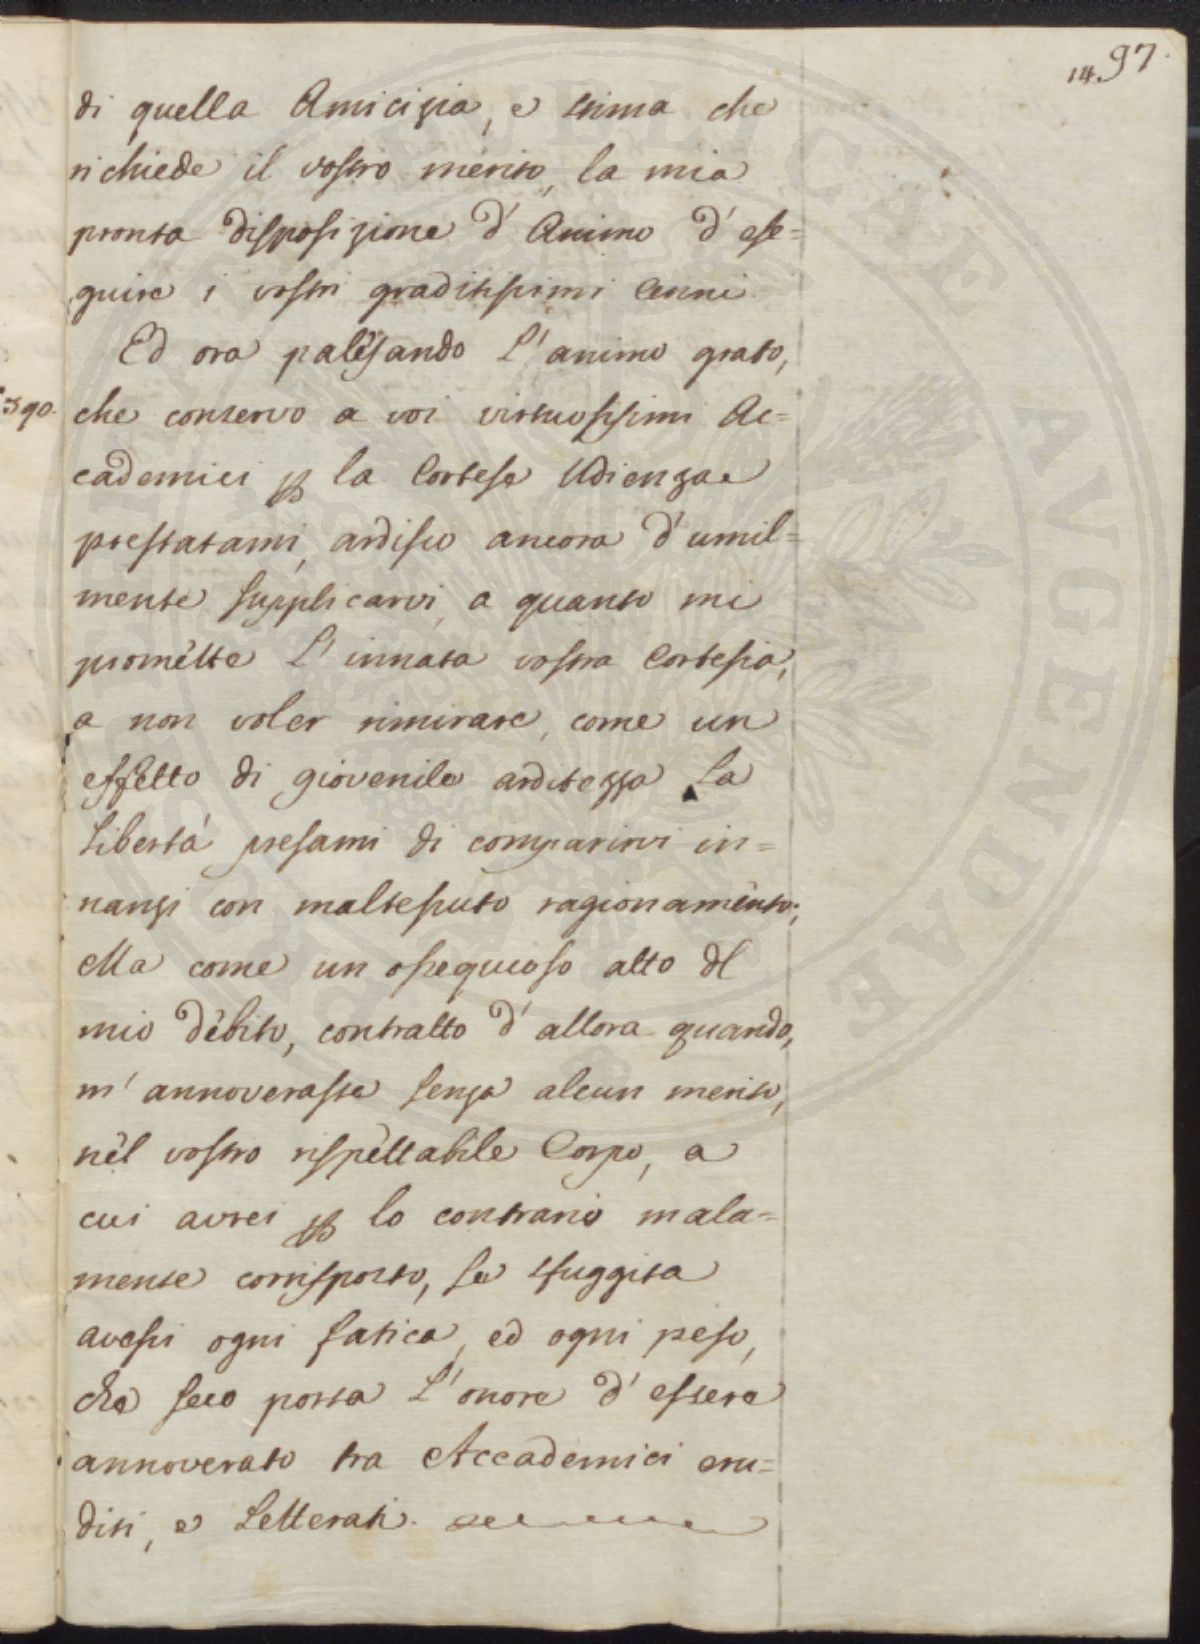 14. 97.
di quella Amicizia, e stima che
richiede il vostro merito, la mia
pronta disposizione d' Animo d' ese=
guire i vostri graditissimi Cenni.
Ed ora palèsando l' animo grato,
che conservo a voi virtuosissimi Ac=
cademici ꝑ la Cortese Udienza
prestatami, ardisco ancora d' umil=
mente supplicarvi, a quanto mi
promètte l' innata vostra Cortesia,
a non voler rimirare, come un
effètto di giovenile arditezza la
libertà presami di comparirvi in=
nanzi con maltessuto ragionamènto;
Ma come un ossequioso atto del
mio dèbito, contratto d' allora quando,
m' annoveraste senza alcun merito,
nèl vostro rispèttabile Corpo, a
cui avrei ꝑ lo contrario mala=
mente corrisposto, se sfuggita
avessi ogni fatica, ed ogni peso,
che seco porta l' onore d' essere
annoverato tra Accademici eru=
diti, e Letterati.
PUBLICAE FELICITATI AUGENDAE